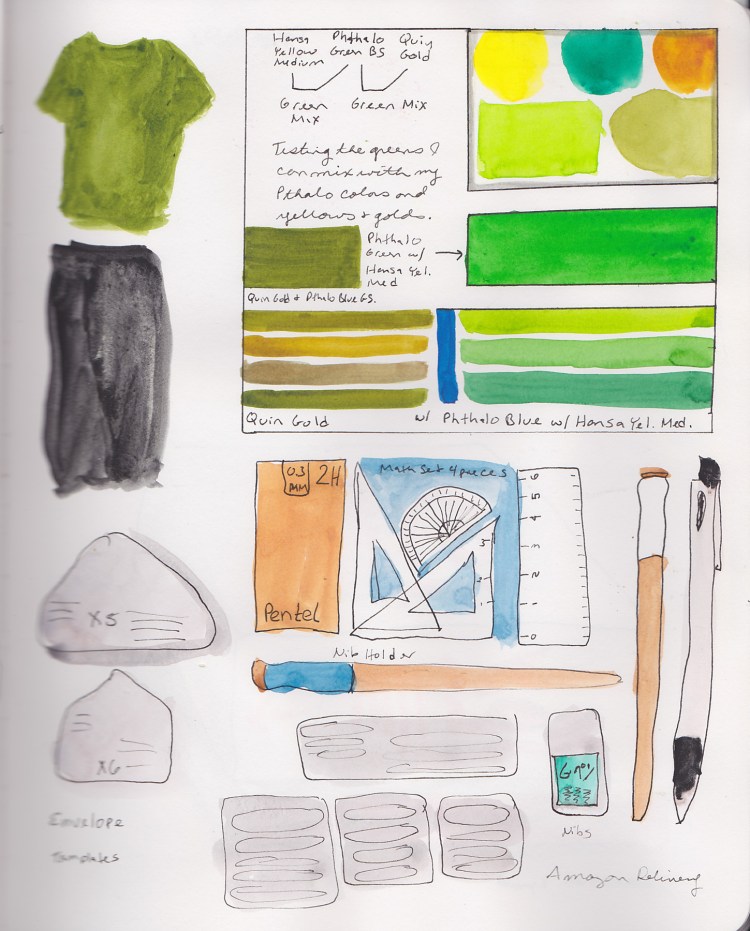 Hansa Yellow Medium
Phthalo Green BS
Quin Gold
Green Mix
Green Mix
Testing the greens I
can mix with my
Pthalo colors and
yellows & golds.
Phthalo
Green w/
Hansa Yel.
Med
Quin Gold & Pthalo Blue GS.
Quin Gold
w/ Phthalo Blue w/ Hansa Yel. Med.
03
MM
2H
Pentel
Math Set 4 pieces
3
2
1
6
5
4
3
2
1
0
Nib Holder
X5
X6
Envelope
Templates
Nibs
Amazon